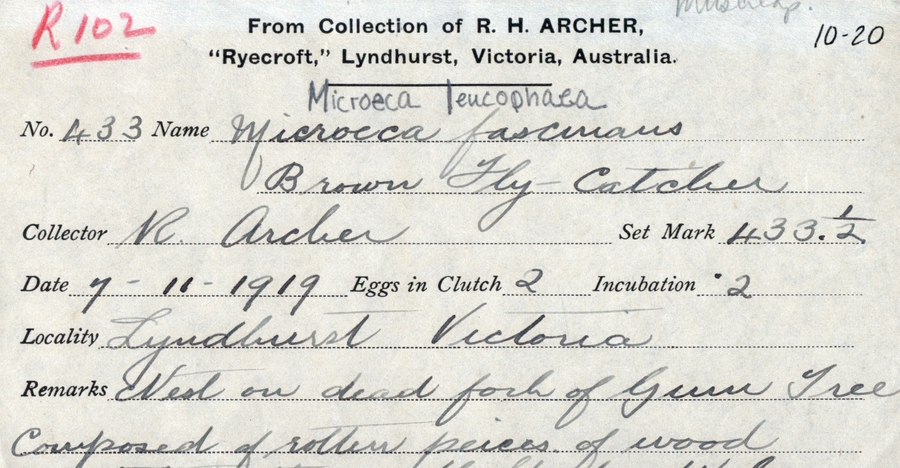 R 102
10-20
From Collection of R. H. ARCHER,
"Ryecroft," Lyndhurst, Victoria, Australia.
Microeca leucophaea
No. 433 Name Microeca fascinans
Brown Fly-Catcher
Collector R. Archer Set Mark 433.1/2
Date 7-11-1919 Eggs in Clutch 2 Incubation 2
Locality Lyndhurst Victoria
Remarks Nest on dead fork of Gum Tree
Composed of rotten peices of wood